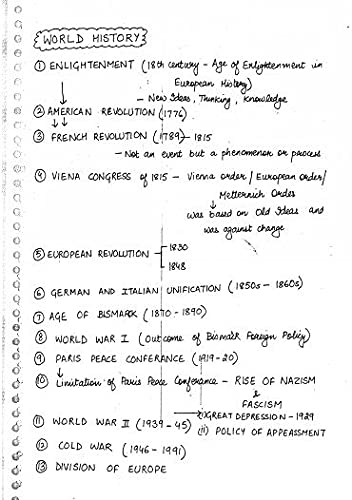 WORLD HISTORY
① ENLIGHTENMENT (18th century - Age of Enlightenment in
European History)
- New Ideas, Thinking, Knowledge
② AMERICAN REVOLUTION (1776)
③ FRENCH REVOLUTION (1789) - 1815
- Not an event but a phenomenon or process
④ VIENA CONGRESS of 1815 - Vienna order / European order /
Metternich Order
was based on Old Ideas and
was against change
⑤ EUROPEAN REVOLUTION - 1830
1848
⑥ GERMAN AND ITALIAN UNIFICATION (1850s - 1860s)
⑦ AGE OF BISMARK (1870 - 1890)
⑧ WORLD WAR I (Outcome of Bismark Foreign Policy)
⑨ PARIS PEACE CONFERANCE (1919-20)
⑩ Limitation of Paris Peace Conferance - RISE OF NAZISM
&
FASCISM
(i) GREAT DEPRESSION - 1929
⑪ WORLD WAR II (1939-45) (ii) POLICY OF APPEASSMENT
⑫ COLD WAR (1946-1991)
⑬ DIVISION OF EUROPE